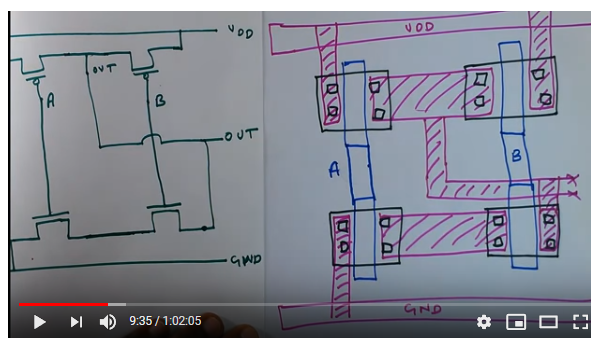 VDD
OUT
A
B
OUT
GND
VDD
A
B
GND
9:35 / 1:02:05